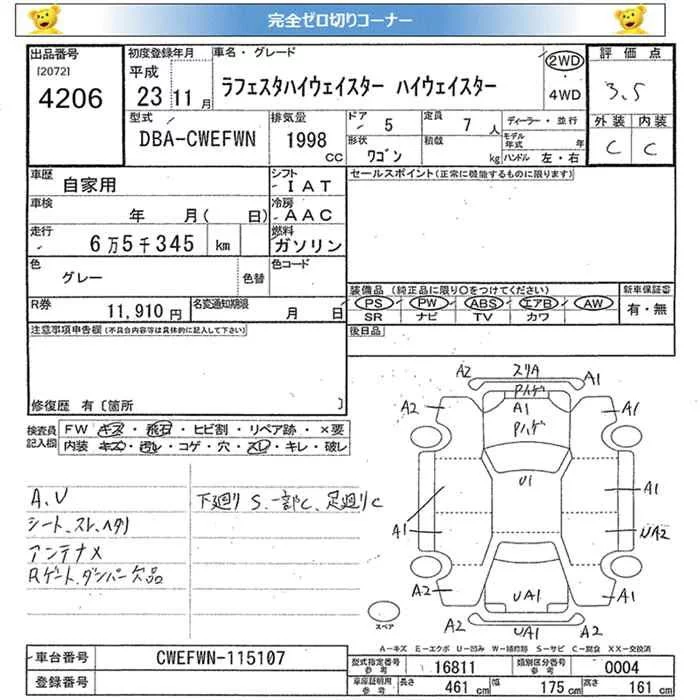 完全ゼロ切りコーナー
出品番号 初度登録年月 車名・グレード 評価点
[2072] 平成 2WD
4206 23 11月 ラフェスタハイウェイスター ハイウェイスター 4WD 3.5
型式 排気量 ドア 5 定員 7人 ディーラー・並行 外装 内装
DBA-CWEFWN 1998 cc 形状 ワゴン 積載 kg モデル年式 年 C C
ハンドル 左・右
車歴 自家用 シフト IAT セールスポイント(正常に機能するものに限ります)
車検 年 月( 日) 冷房 AAC
走行 6万5千345 km 燃料 ガソリン
色 グレー 色替 色コード
装備品(純正品に限り○をつけてください) 新車保証書
R券 11,910円 名変通知期限 月 日 PS PW ABS エアB AW 有・無
SR ナビ TV カワ
注意事項申告欄(不具合内容等は具体的に記入して下さい) 後日品
修復歴 有〔箇所 〕
検査員記入欄 FW キズ・飛石・ヒビ割・リペア跡・×要
内装 キズ・汚レ・コゲ・穴・スレ・キレ・破レ
A2 スリA A1
Pハゲ
A2 A1 A1
Pハゲ
U1
A1 A1
UA2
A2 UA1 A1
A2 UA1 A2
スペア
A.V
シート、スレ、ヘタリ
アンテナX
Rゲート、ダンパー欠品
下廻りS、一部C、足廻りC
A-キズ E-エクボ U-凹み W-補修跡 S-サビ C-腐食 XX-交換済
車台番号 CWEFWN-115107
登録番号
型式指定番号 参考 16811 類別区分番号 参考 0004
車庫証明用 参考 長さ 461 cm 幅 175 cm 高さ 161 cm